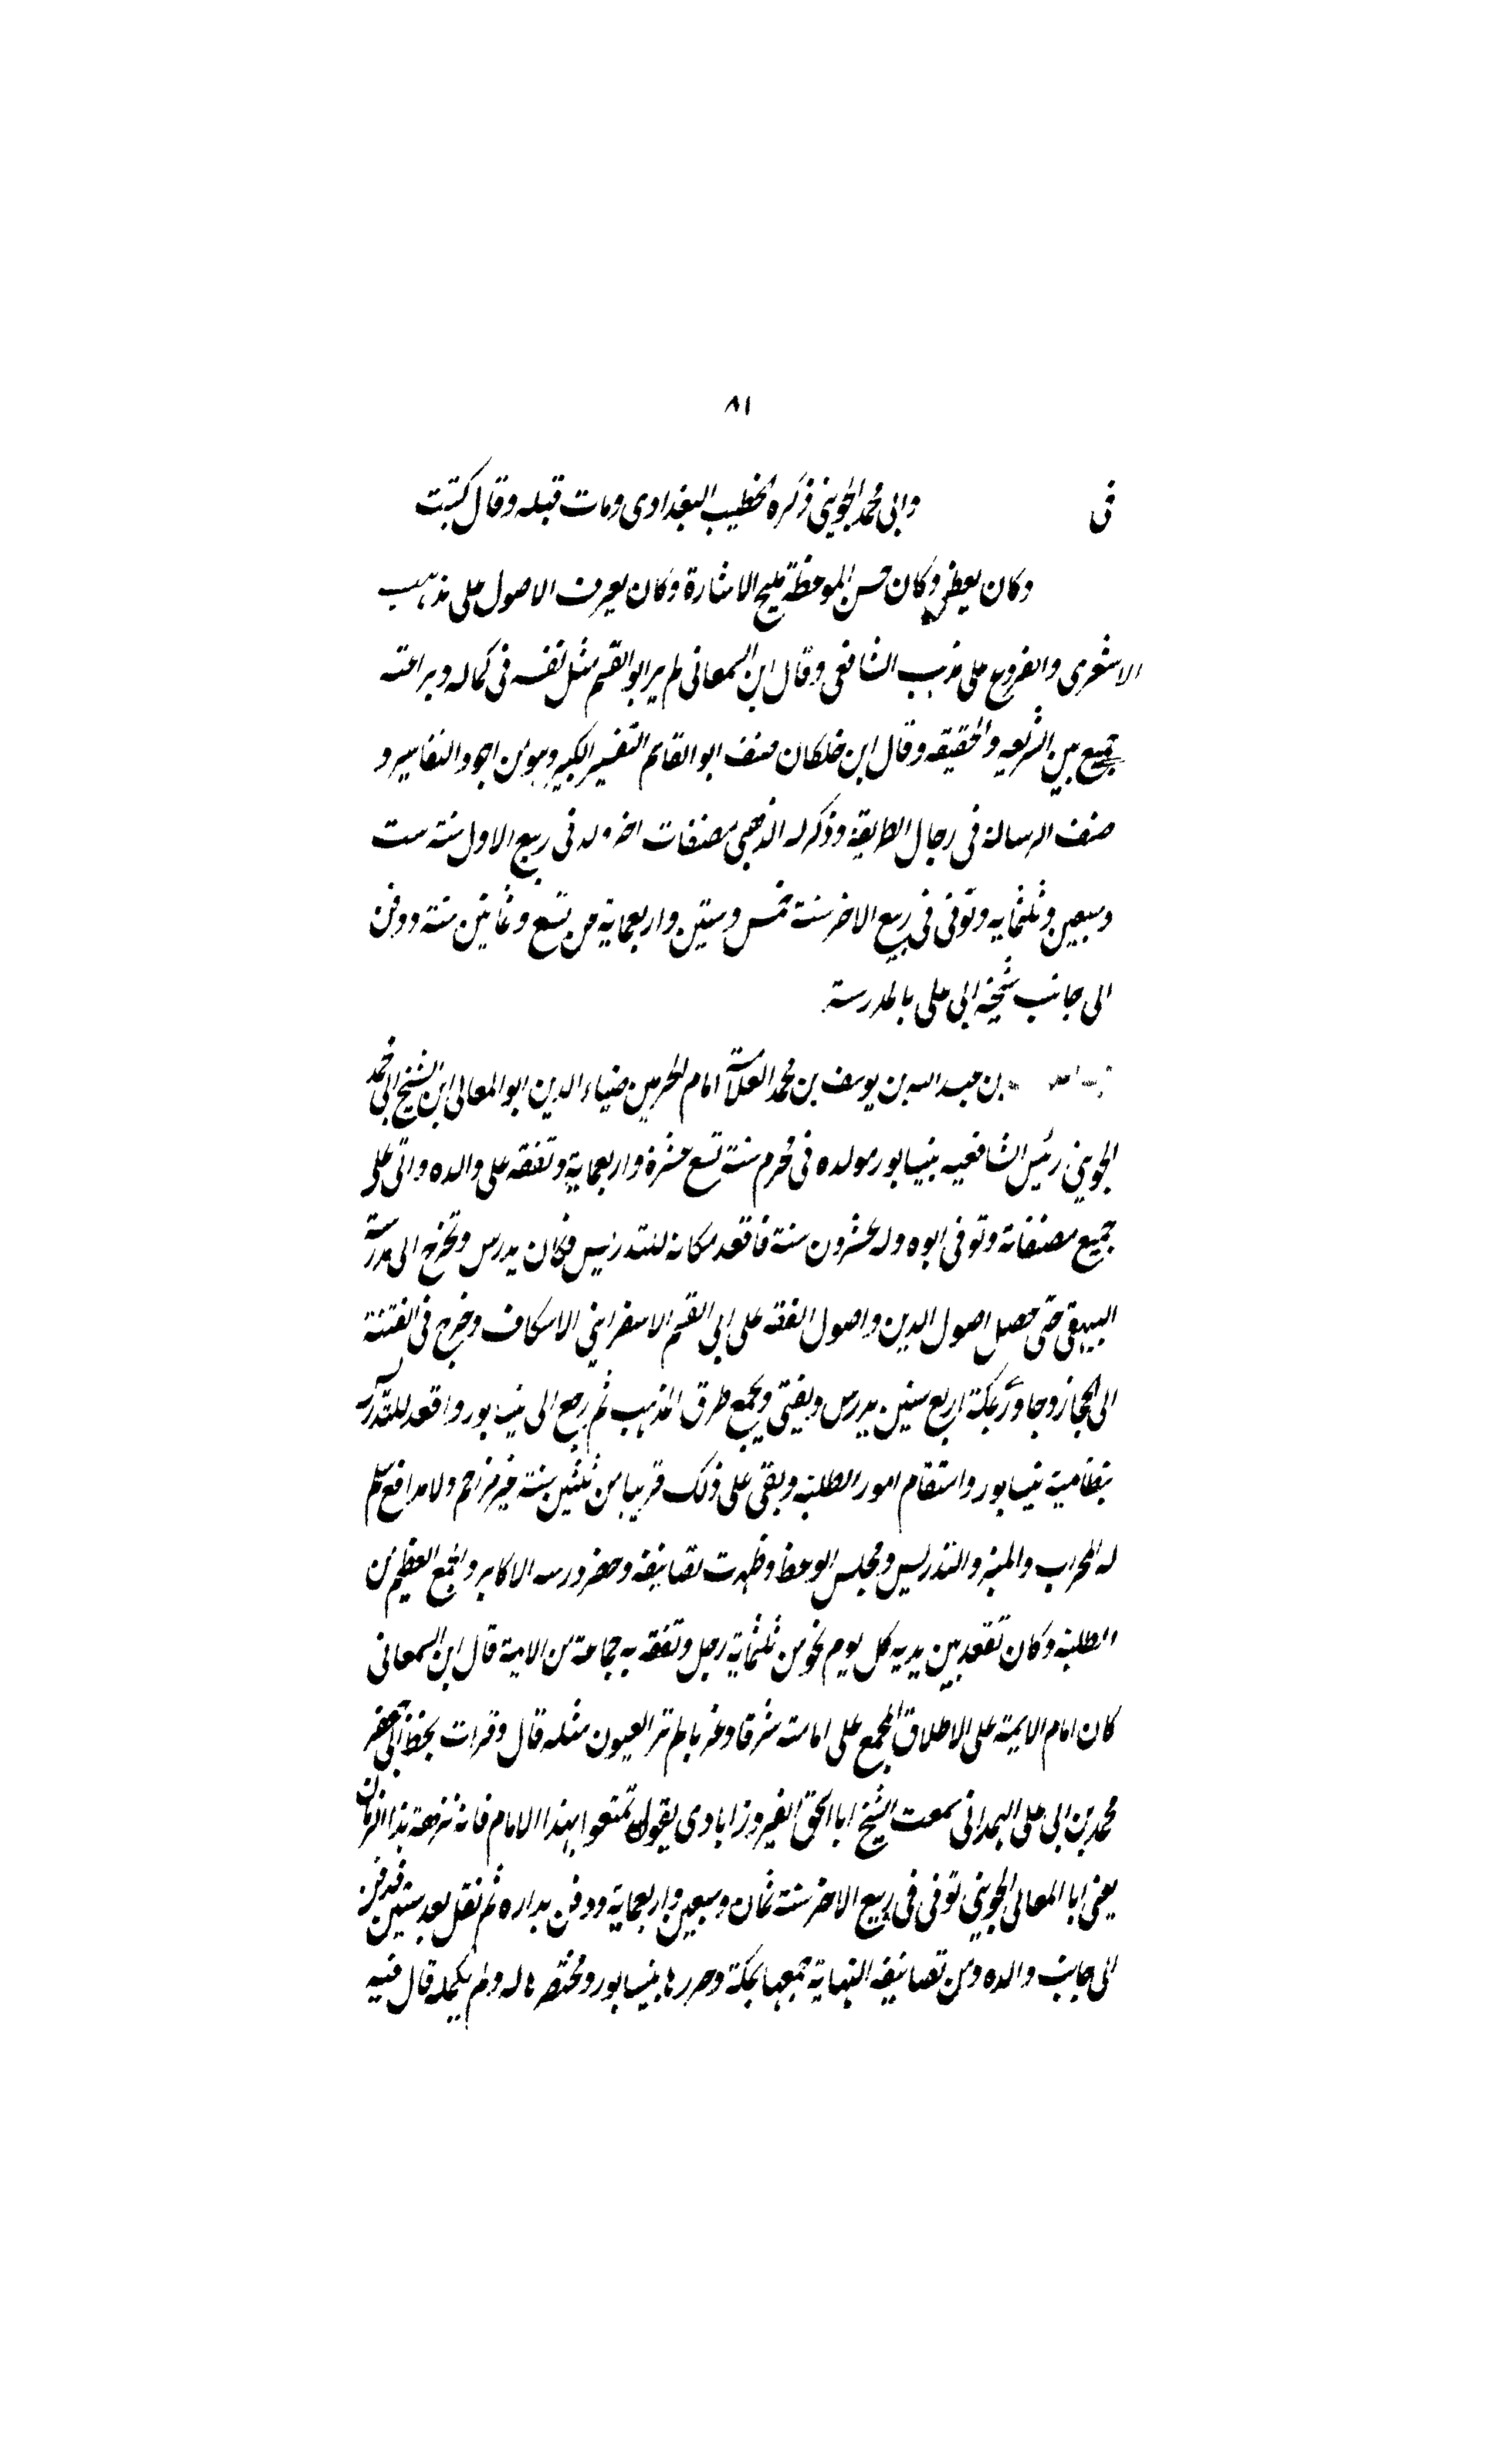 ٨١
فى وابى محمد الجوينى ذكره الخطيب البغدادى ومات قبله وقال كتبت
وكان يعظ وكان حسن الموعظة مليح الاشارة وكان يعرف الاصول على مذهب
الاشعرى والفروع على مذهب الشافعى وقال ابن السمعانى لم ير ابو القسم مثل نفسه فى كماله وبراعته
جمع بين الشريعه والحقيقه وقال ابن خلكان صنف ابو القاسم التفسير الكبير وهو من اجود التفاسير و
صنف الرسالة فى رجال الطريقة وذكر له الذهبى مصنفات اخر ولد فى ربيع الاول سنة ست
وسبعين وثلثمايه وتوفى فى ربيع الاخر سنة خمس وستين واربعماية من تسع وثمانين سنة ودفن
الى جانب شيخه ابى على بالمدرسة
بن عبد الله بن يوسف بن محمد العلامة امام الحرمين ضياء الدين ابو المعالى ابن الشيخ ابى محمد
الجوينى رئيس الشافعيه بنيسابور مولده فى محرم سنة تسع عشرة واربعماية وتفقه على والده واتى على
جميع مصنفاته وتوفى ابوه وله عشرون سنة فاقعد مكانه للتدريس فكان يدرس وتخرج الى مدرسة
البيهقى حتى حصل اصول الدين واصول الفقه على ابى القسم الاسفراينى الاسكاف وخرج فى الفتنة
الى الحجاز وجاور بمكة اربع سنين يدرس ويفتى ويجمع طرق المذهب ثم رجع الى نيسابور واقعد للتدريس
بنظامية نيسابور واستقام امور الطلبة وبقى على ذلك قريبا من ثلثين سنة غير مزاحم ولا مدافع مسلم
له المحراب والمنبر والتدريس ومجلس الوعظ وظهرت تصانيفه وحضر درسه الاكابر والجمع العظيم من
الطلبة وكان تقعد بين يديه كل يوم نحو من ثلثماية رجل وتفقه به جماعة من الايمة قال ابن السمعانى
كان امام الايمة على الاطلاق المجمع على امامته شرقا وغربا لم تر العيون مثله قال وقرات بخط ابى جعفر
محمد بن ابى على الهمدانى سمعت الشيخ ابا اسحق الفيروزابادى يقول تمتعوا بهذا الامام فانه نزهة هذا الزمان
يعنى ابا المعالى الجوينى توفى فى ربيع الاخر سنة ثمان وسبعين واربعماية ودفن بداره ثم نقل بعد سنين فدفن
الى جانب والده ومن تصانيفه النهاية جمعها بمكة وحررها بنيسابور ومختصرها له ولم يكمله قال فيه